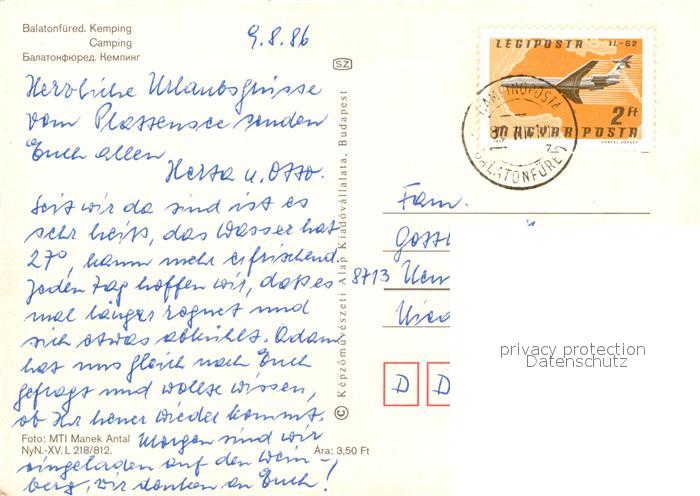 Balatonfüred. Kemping
Camping
Балатонфюред. Кемпинг
9.8.86
SZ
Herzliche Urlaubsgrüsse
vom Plattensee senden
Euch allen
Herta u. Otto.
Seit wir da sind ist es
sehr heiß, das Wasser hat
27°, kaum mehr erfrischend.
Jeden Tag hoffen wir, daß es
mal länger regnet und
sich etwas abkühlt. Adam
hat uns gleich nach Euch
gefragt und wollte wissen,
ob Ihr heuer wieder kommt.
Morgen sind wir
eingeladen auf den Wein-
berg, wir denken an Euch!
Foto: MTI Manek Antal
NyN.-XV. L 218/812.
Ára: 3,50 Ft
© Képzőművészeti Alap Kiadóvállalata, Budapest
LÉGIPOSTA IL-62
2 Ft
MAGYAR POSTA
CAMPINGPOSTA
BALATONFÜRED
Fam.
8713
D D
privacy protection
Datenschutz